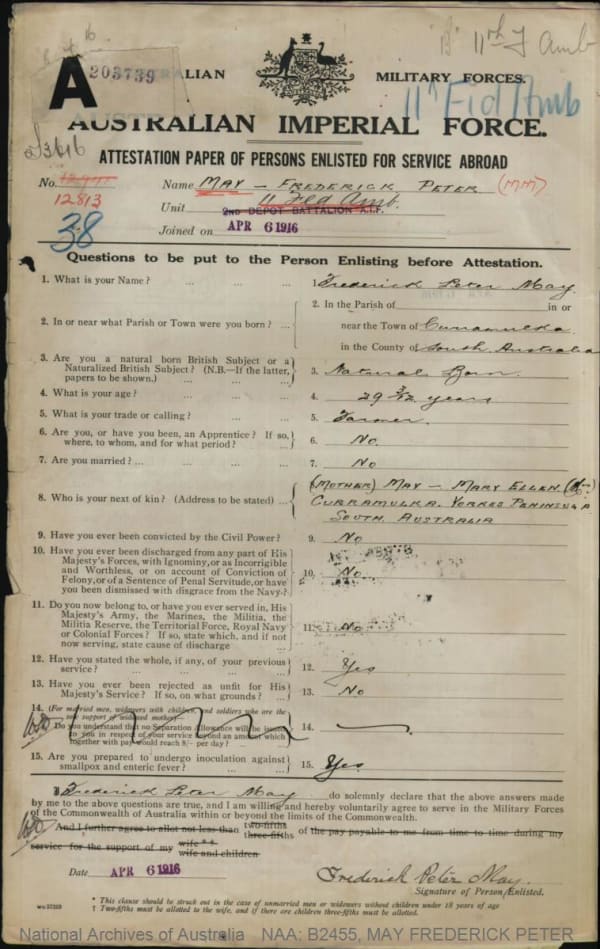 11th F Amb
A
203739
AUSTRALIAN MILITARY FORCES.
11th Fld Amb
AUSTRALIAN IMPERIAL FORCE.
ATTESTATION PAPER OF PERSONS ENLISTED FOR SERVICE ABROAD
No. 12813
Name MAY - FREDERICK PETER (MM)
Unit 11 Fld Amb.
2ND DEPOT BATTALION A.I.F.
Joined on APR 6 1916
38
Questions to be put to the Person Enlisting before Attestation.
1. What is your Name? ... ... ... 1. Frederick Peter May.
2. In or near what Parish or Town were you born? ... 2. In the Parish of in or
near the Town of Curramulka
in the County of South Australia
3. Are you a natural born British Subject or a
Naturalized British Subject? (N.B.—If the latter,
papers to be shown.) ... ... 3. Natural Born.
4. What is your age? ... ... ... 4. 29 3/12 years
5. What is your trade or calling? ... ... 5. Farmer.
6. Are you, or have you been, an Apprentice? If so,
where, to whom, and for what period? ... 6. No.
7. Are you married? ... ... ... ... 7. No
8. Who is your next of kin? (Address to be stated) ... (MOTHER) MAY - MARY ELLEN.
CURRAMULKA. YORKES PENINSULA
SOUTH AUSTRALIA
9. Have you ever been convicted by the Civil Power? 9. No
10. Have you ever been discharged from any part of His
Majesty's Forces, with Ignominy, or as Incorrigible
and Worthless, or on account of Conviction of
Felony, or of a Sentence of Penal Servitude, or have
you been dismissed with disgrace from the Navy? 10. No.
11. Do you now belong to, or have you ever served in, His
Majesty's Army, the Marines, the Militia, the
Militia Reserve, the Territorial Force, Royal Navy
or Colonial Forces? If so, state which, and if not
now serving, state cause of discharge ... 11. No
12. Have you stated the whole, if any, of your previous
service? ... ... ... ... 12. Yes
13. Have you ever been rejected as unfit for His
Majesty's Service? If so, on what grounds? 13. No
14. (For married men, widowers with children, and soldiers who are the
sole support of widowed mother)—
Do you understand that no Separation Allowance will be issued
to you in respect of your service beyond an amount which
together with pay would reach 8/- per day? 14.
15. Are you prepared to undergo inoculation against
smallpox and enteric fever? ... ... 15. Yes.
I, Frederick Peter May do solemnly declare that the above answers made
by me to the above questions are true, and I am willing and hereby voluntarily agree to serve in the Military Forces
of the Commonwealth of Australia within or beyond the limits of the Commonwealth.
And I further agree to allot not less than two-fifths three-fifths of the pay payable to me from time to time during my
service for the support of my wife* † wife and children
Date APR 6 1916
Frederick Peter May.
Signature of Person Enlisted.
* This clause should be struck out in the case of unmarried men or widowers without children under 18 years of age
† Two-fifths must be allotted to the wife, and if there are children three-fifths must be allotted.
National Archives of Australia NAA: B2455, MAY FREDERICK PETER